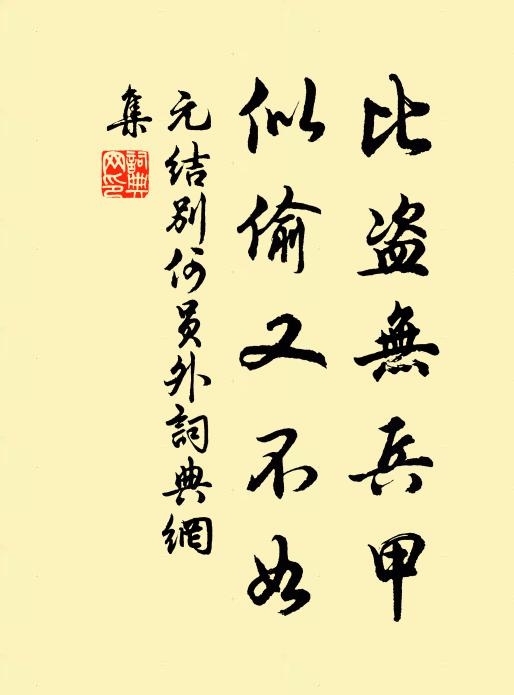 比盗無兵甲
似偷又不如
元结别何员外詞典網
集
詞典网印